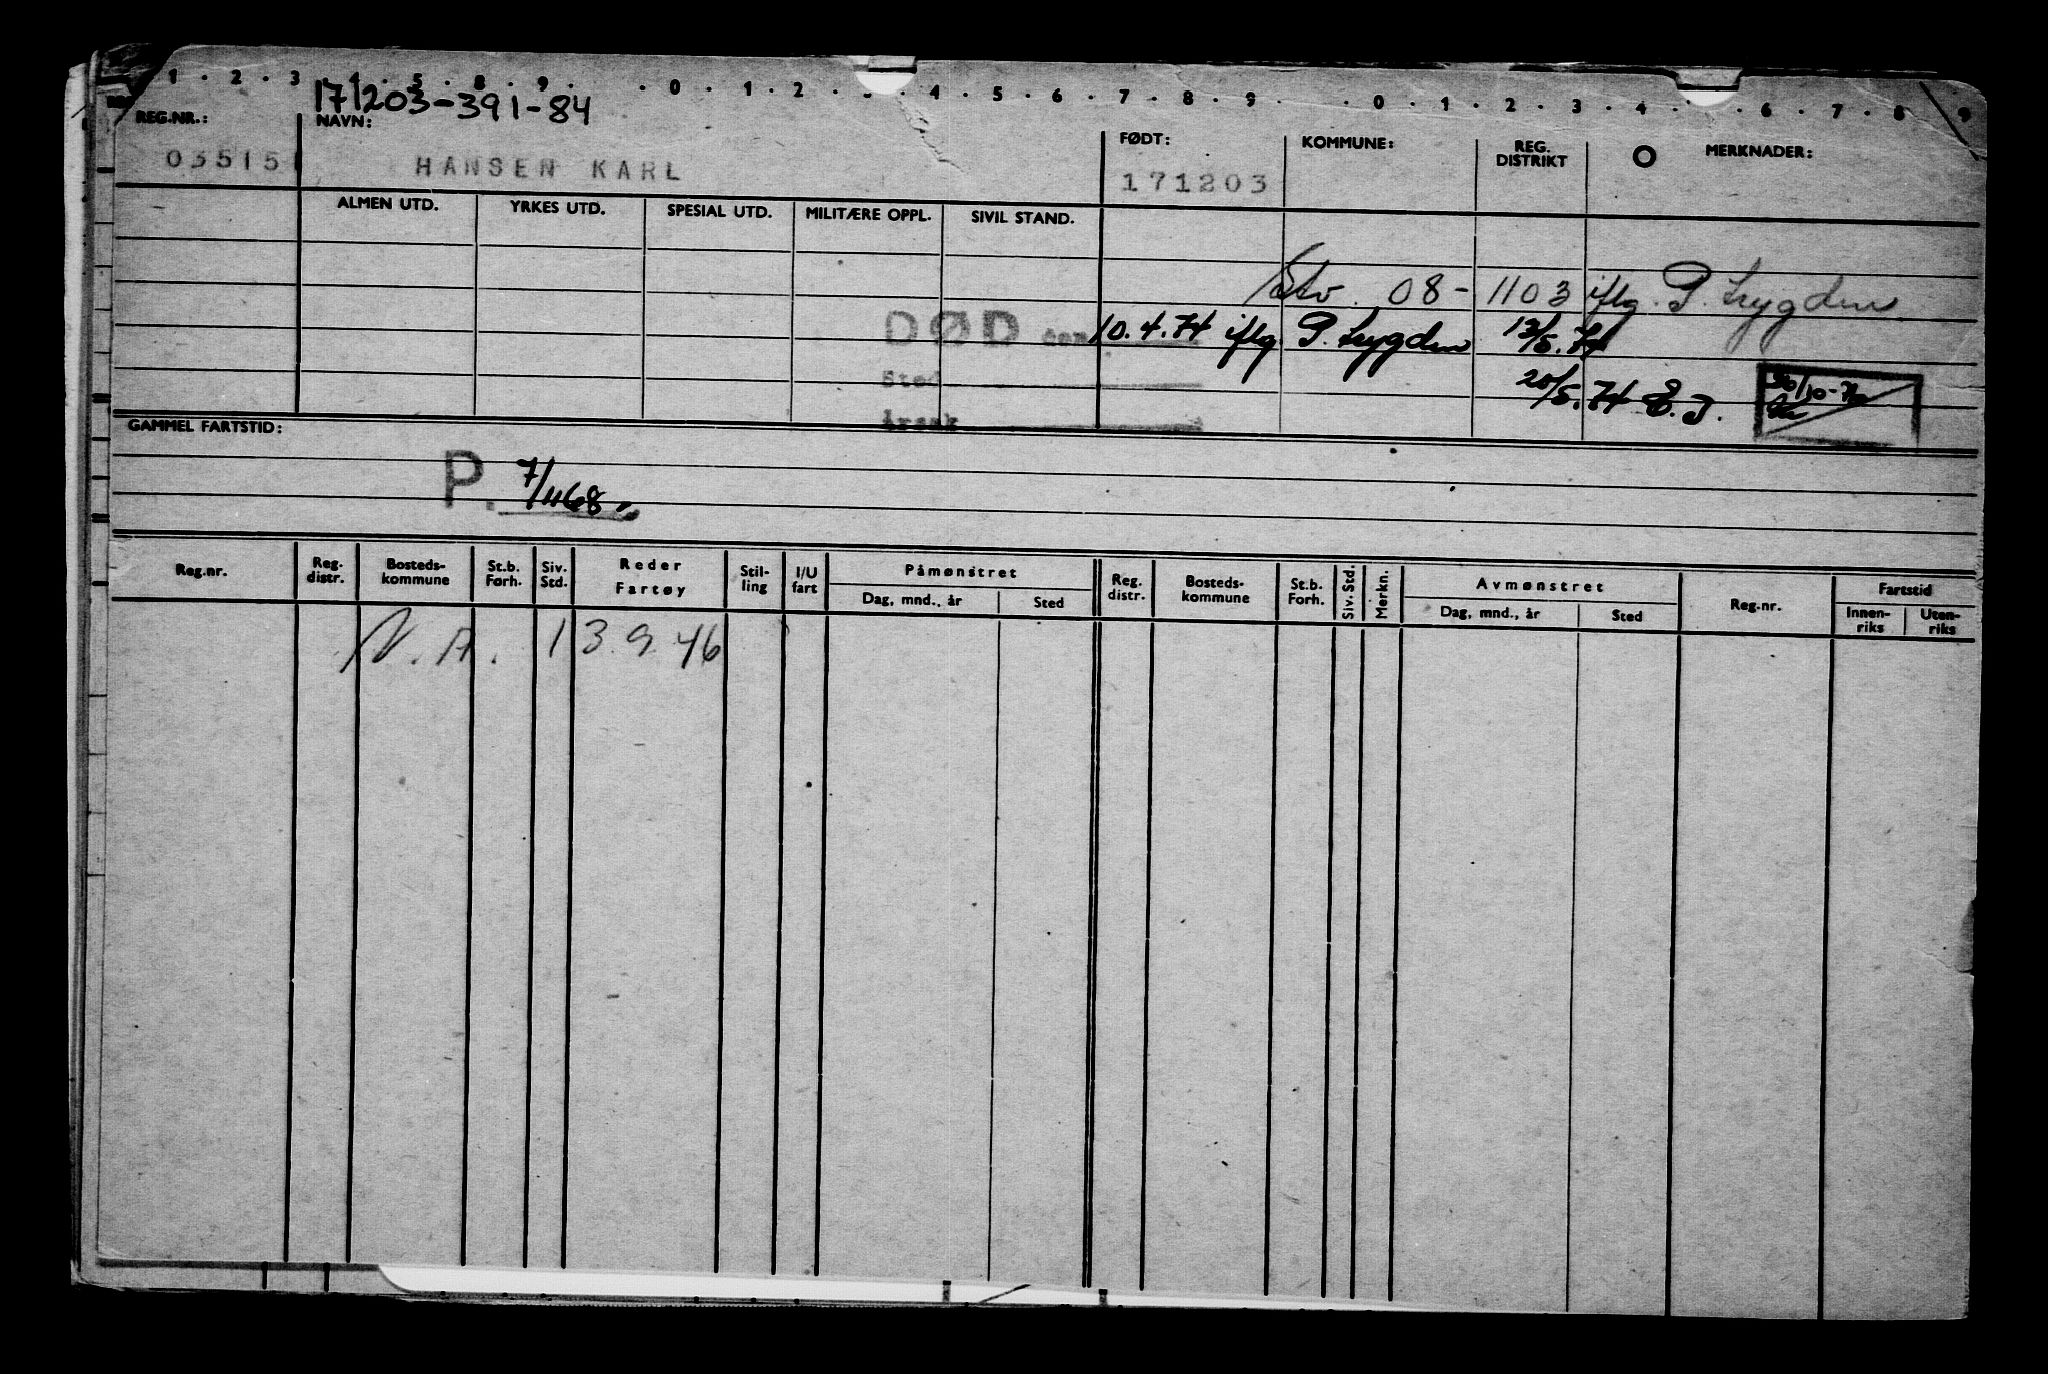 1 . 2 . 3 . 4 . 5 . 8 . 9 . . 0 . 1 . 2 . 3 . 4 . 5 . 6 . 7 . 8 . 9 . . 0 . 1 . 2 . 3 . 4 . . 6 . 7 . 8 . 9
171203-391-84
REG.NR.: NAVN: FØDT: KOMMUNE: REG. DISTRIKT O MERKNADER:
035151 HANSEN KARL 171203
ALMEN UTD. YRKES UTD. SPESIAL UTD. MILITÆRE OPPL. SIVIL STAND.
Stv. 08- 1103 iflg. P. Trygden
DØD den 10.4.74 iflg. P. Trygden 13/5.74
Sted 20/5.74 E.J.
Årsak
GAMMEL FARTSTID:
P. 7/1168
Reg.nr. Reg. distr. Bosteds-kommune St.b. Forh. Siv. Std. Reder Fartøy Stil-ling I/U fart Påmønstret Dag, mnd., år Sted Reg. distr. Bosteds-kommune St.b. Forh. Siv. Std. Merkn. Avmønstret Dag, mnd., år Sted Reg.nr. Fartstid Innen-riks Uten-riks
N.A. 13 9 46